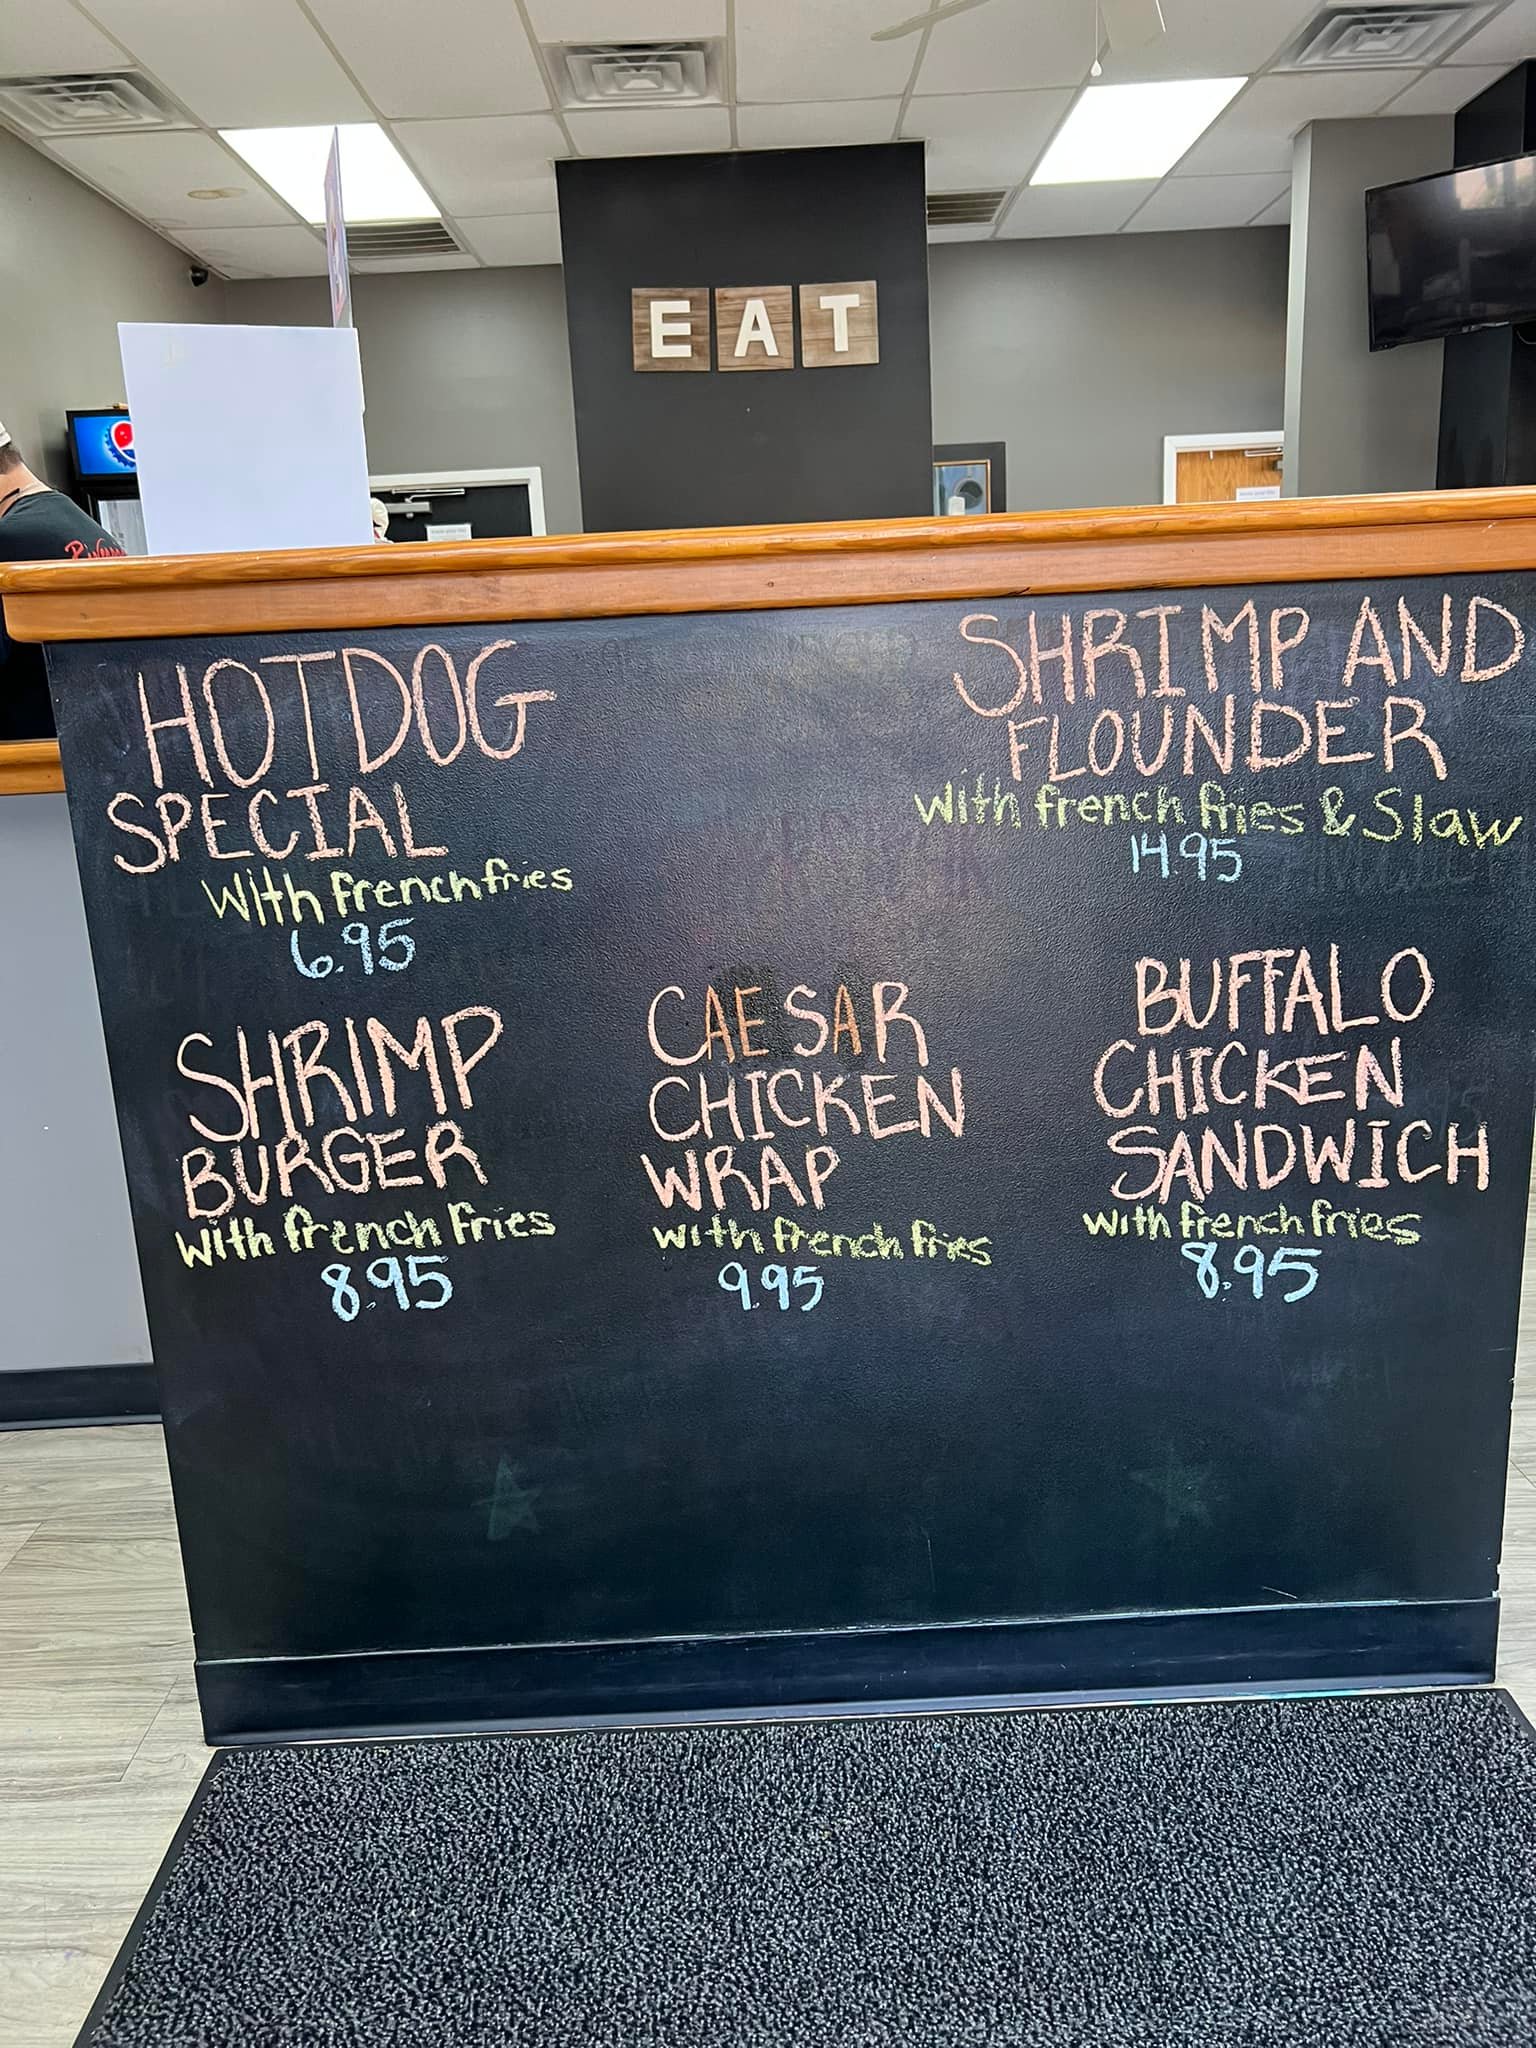 EAT
HOTDOG
SPECIAL
With french fries
6.95
SHRIMP AND
FLOUNDER
With french fries & Slaw
14.95
SHRIMP
BURGER
With french fries
8.95
CAESAR
CHICKEN
WRAP
With french fries
9.95
BUFFALO
CHICKEN
SANDWICH
With french fries
8.95